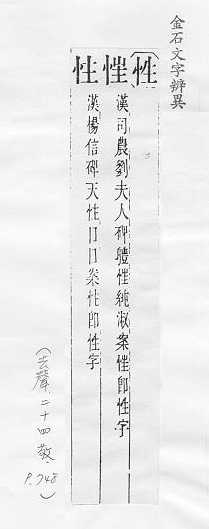 金石文字辨異
性
㤖 漢司農劉夫人碑體㤖純淑案㤖即性字
性 漢楊信碑天性口口案性即性字
(去聲二十四敬 P.748)